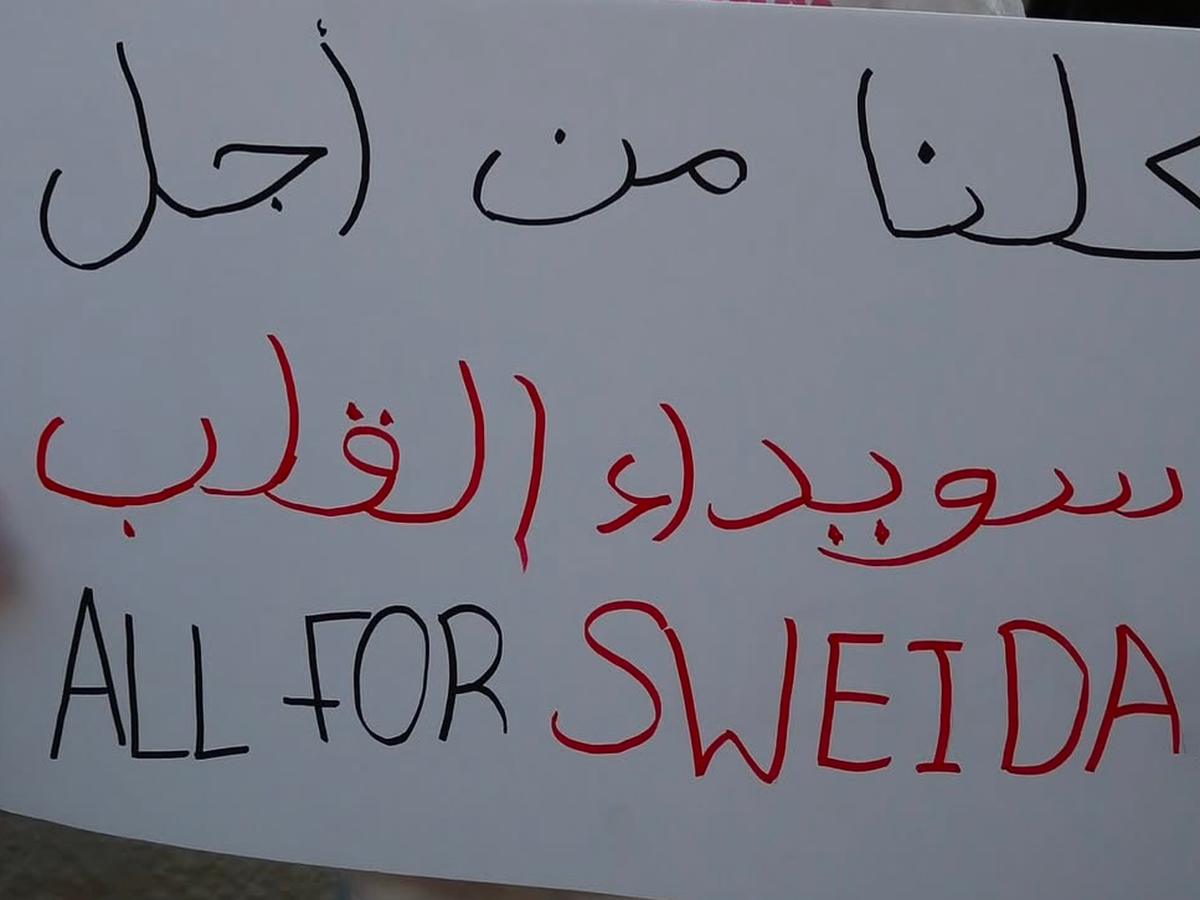 كلنا من أجل
سويداء القلب
ALL FOR SWEIDA